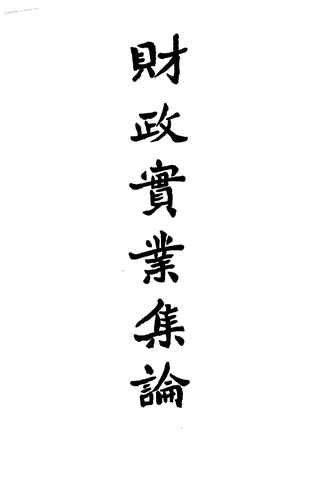 財政實業集論